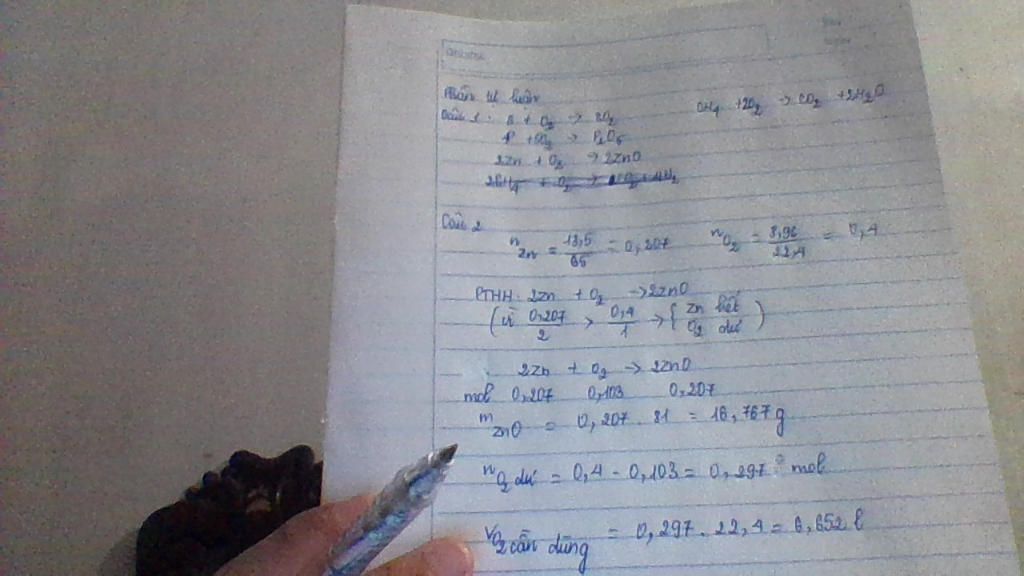 Phần tự luận
Câu 1: S + O₂ → SO₂ CH₄ + 2O₂ → CO₂ + 2H₂O
P + 5O₂ → P₂O₅
2Zn + O₂ → 2ZnO
Câu 2
n Zn = 13,5/65 = 0,207 n O₂ = 8,96/22,4 = 0,4
PTHH: 2Zn + O₂ → 2ZnO
(vì 0,207/2 > 0,4/1 → { Zn hết O₂ dư )
2Zn + O₂ → 2ZnO
mol 0,207 0,103 0,207
m ZnO = 0,207 . 81 = 16,767 g
n O₂ dư = 0,4 - 0,103 = 0,297 mol
V O₂ cần dùng = 0,297 . 22,4 = 6,652 l